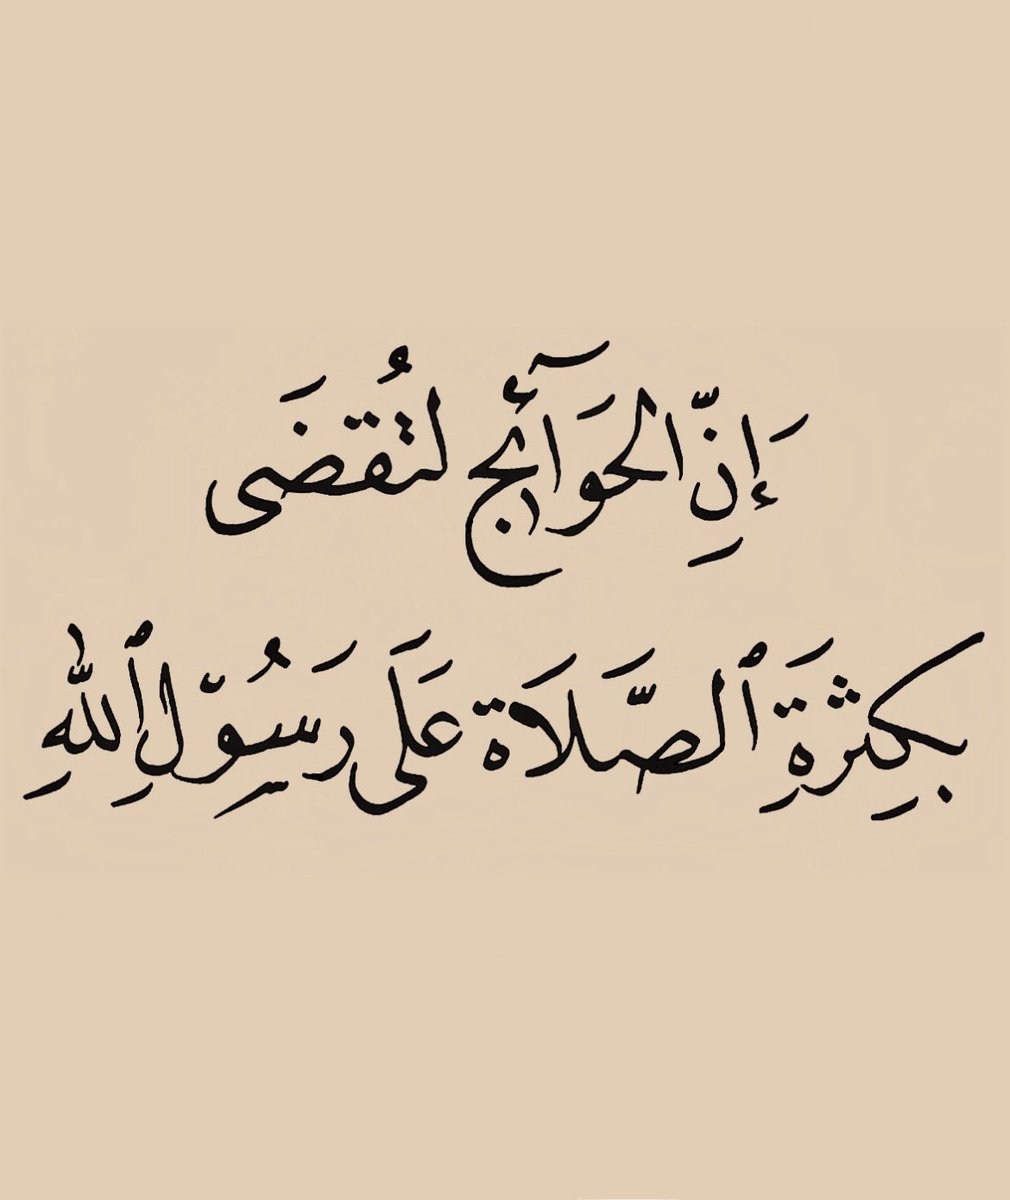 إِنِّ الحَوَآئج لتُقضَى
بكِثرَةِ ٱلصَّلَاة عَلَى رَسُوّلِ ٱللهِ